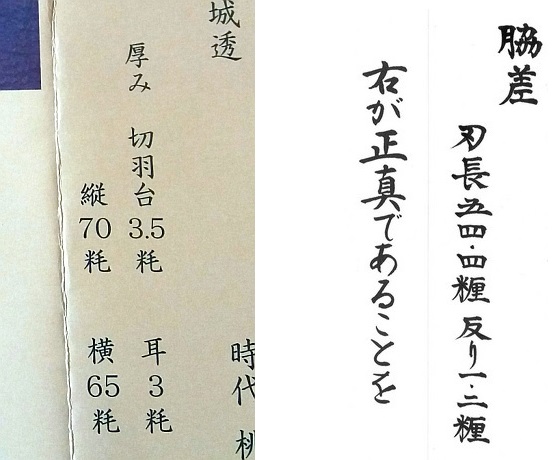 脇差
刃長五四・四糎 反り一・二糎
右が正真であることを
城透
時代 桃
厚み 切羽台 3.5 粍 耳 3 粍
縦 70 粍 横 65 粍